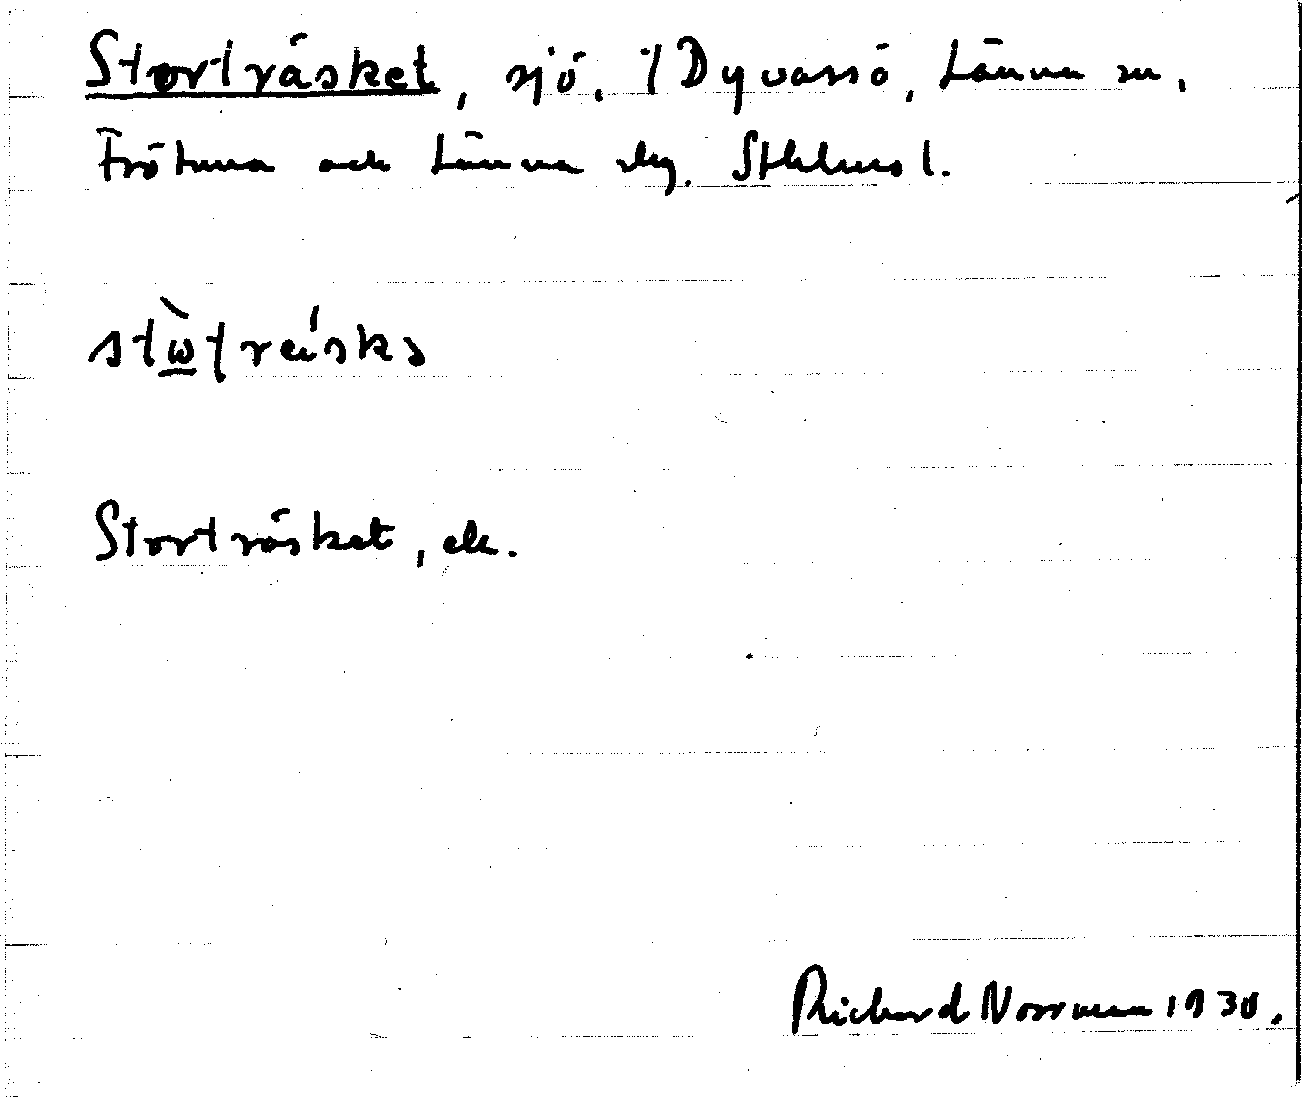 Storträsket, sjö. i Dyvassö, Länna sn,
Frötuna och Länna skg. Sthlms l.
stὼ̲träisks
Storträsket, ek.
Richard Norrman 1930.